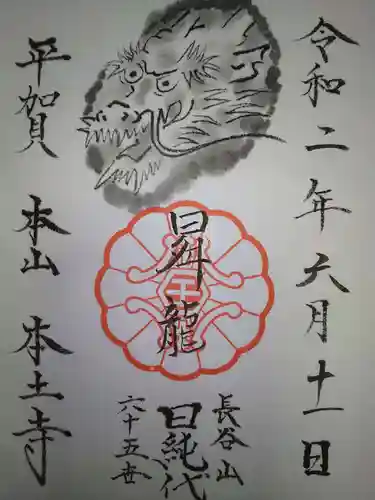 令和二年六月十一日
昇龍
長谷山
日純代
六十五世
平賀 本山 本土寺